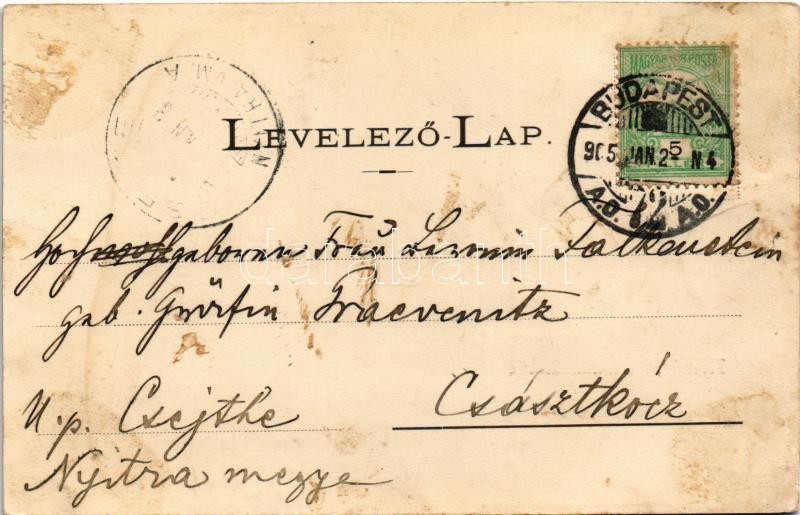 MAGYAR KIR. POSTA
5
BUDAPEST
905 JAN. 2 N 4
A.O.
LEVELEZŐ-LAP.
darabanth
Hochgeboren Frau
Falkenstein
geb. Gräfin Graevenitz
U. p. Csejthe
Császtkócz
Nyitra megye